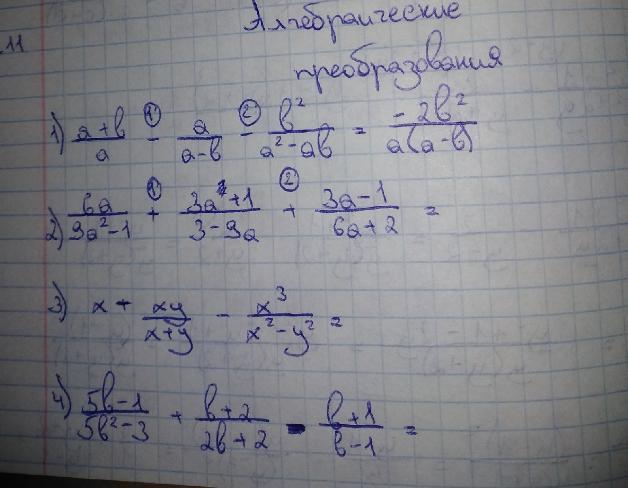 Алгебраические
11
преобразования
1) (a+b)/a - a/(a-b) - b²/(a²-ab) = -2b²/(a(a-b))
2) 6a/(9a²-1) + (3a+1)/(3-9a) + (3a-1)/(6a+2) =
3) x + xy/(x+y) - x³/(x²-y²) =
4) (5b-1)/(5b²-3) + (b+2)/(2b+2) - (b+1)/(b-1) =